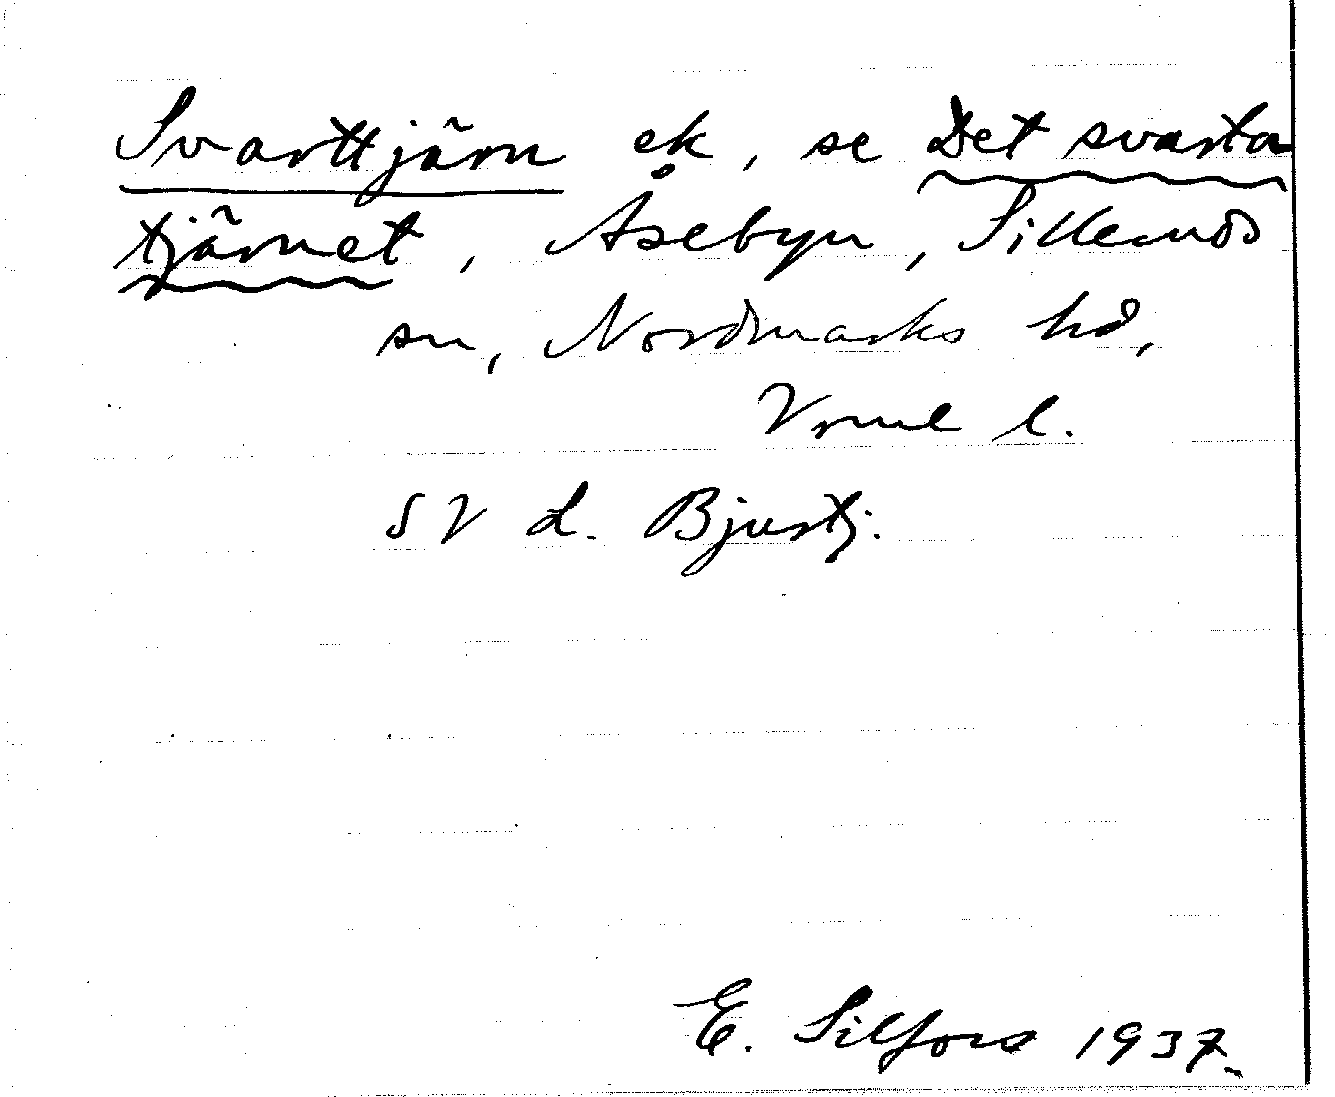 Svarttjärn ek, se Det svarta
tjärnet, Åsebyn, Silleruds
sn, Nordmarks hd,
Vrml l.
SV d. Bjurtj.
E. Silfors 1937.